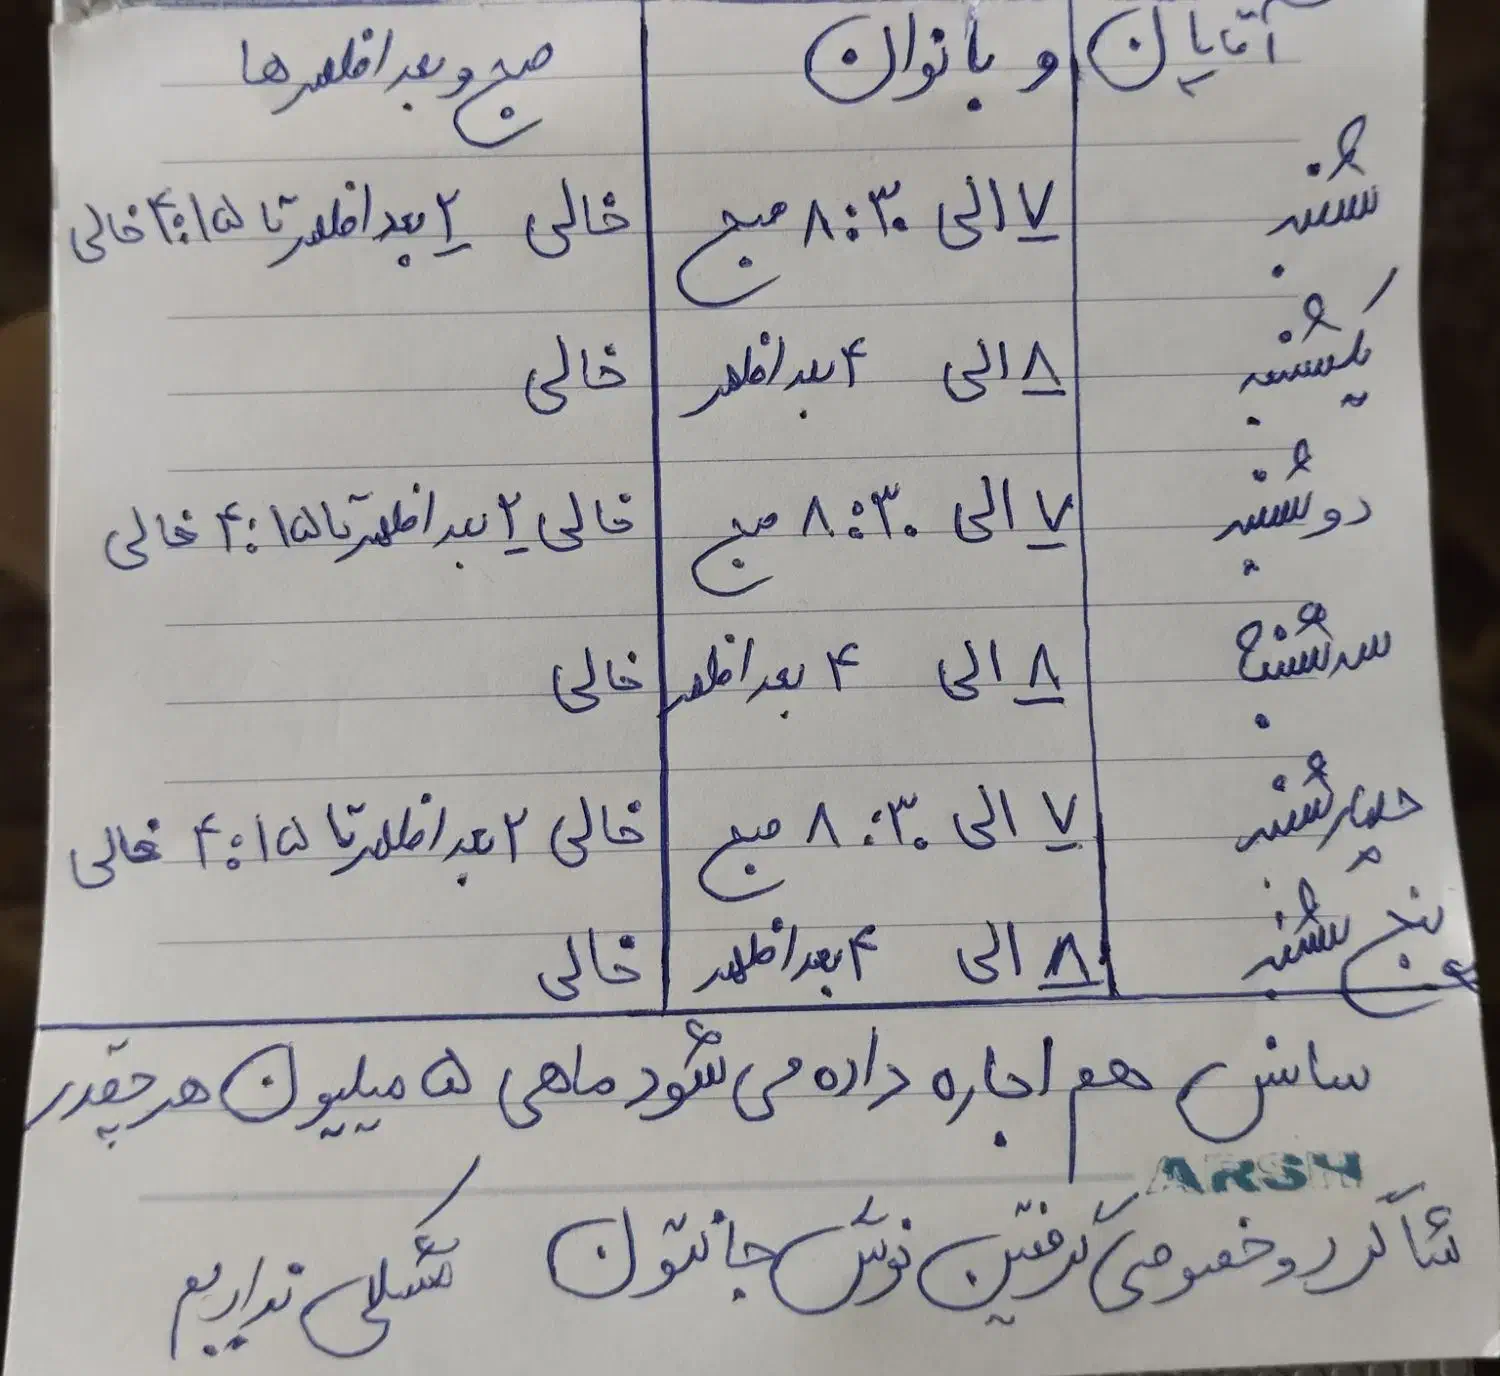 آقایان و بانوان صبح و بعدازظهرها
شنبه ۷ الی ۸:۳۰ صبح خالی ۲ بعدازظهر تا ۴:۱۵ خالی
یکشنبه ۸ الی ۴ بعدازظهر خالی
دوشنبه ۷ الی ۸:۳۰ صبح خالی ۲ بعدازظهر تا ۴:۱۵ خالی
سه شنبه ۸ الی ۴ بعدازظهر خالی
چهارشنبه ۷ الی ۸:۳۰ صبح خالی ۲ بعدازظهر تا ۴:۱۵ خالی
پنج شنبه ۸ الی ۴ بعدازظهر خالی
سانس هم اجاره داده می شود ماهی ۵ میلیون هر چقدر
ARSH
شاگرد خصوصی گرفتین نوش جانتون مشکلی نداریم